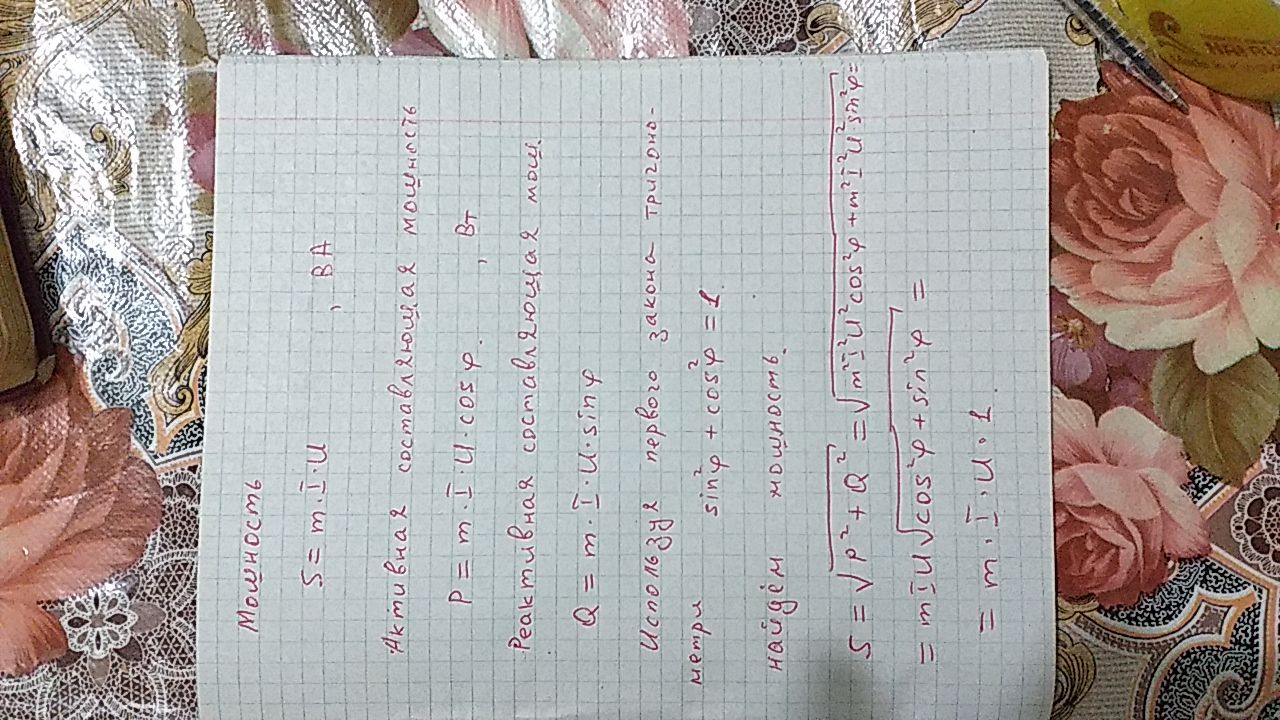 Мошность
S = m · I · U , ВА
Активная составляющая мошность
P = m · I · U · cos φ. , Вт
Реактивная составляющая мощ.
Q = m · I · U · sin φ
Используя первого закона тригоно-
метри sin²φ + cos²φ = 1.
найдём мошность.
S = √P² + Q² = √m²I²U²cos²φ + m²I²U²sin²φ =
= mIU√cos²φ + sin²φ =
= m · I · U · 1